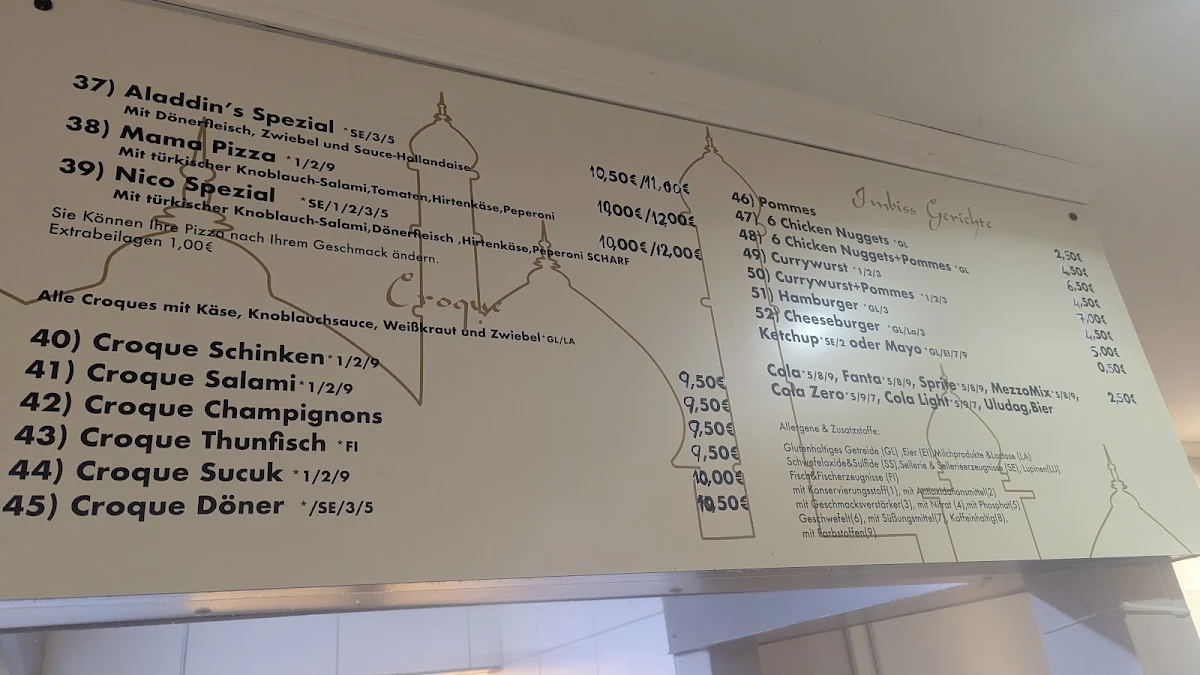 37) Aladdin's Spezial *SE/3/5
Mit Dönerfleisch, Zwiebel und Sauce-Hollandaise
10,50€/11,00€
38) Mama Pizza *1/2/9
Mit türkischer Knoblauch-Salami,Tomaten,Hirtenkäse,Peperoni
10,00€/12,00€
39) Nico Spezial *SE/1/2/3/5
Mit türkischer Knoblauch-Salami,Dönerfleisch ,Hirtenkäse,Peperoni SCHARF
10,00€/12,00€
Sie Können Ihre Pizza nach Ihrem Geschmack ändern.
Extrabeilagen 1,00€
Croque
Alle Croques mit Käse, Knoblauchsauce, Weißkraut und Zwiebel*GL/LA
40) Croque Schinken*1/2/9 9,50€
41) Croque Salami*1/2/9 9,50€
42) Croque Champignons 9,50€
43) Croque Thunfisch *FI 9,50€
44) Croque Sucuk *1/2/9 10,00€
45) Croque Döner */SE/3/5 10,50€
Imbiss Gerichte
46) Pommes 2,50€
47) 6 Chicken Nuggets *GL 4,50€
48) 6 Chicken Nuggets+Pommes *GL 6,50€
49) Currywurst *1/2/3 4,50€
50) Currywurst+Pommes *1/2/3 7,00€
51) Hamburger *GL/3 4,50€
52) Cheeseburger *GL/La/3 5,00€
Ketchup*SE/2 oder Mayo *GL/EI/7/9 0,50€
Cola*5/8/9, Fanta*5/8/9, Sprite*5/8/9, MezzoMix*5/8/9,
Cola Zero*5/9/7, Cola Light*5/9/7, Uludag,Bier 2,50€
Allergene & Zusatzstoffe:
Glutenhaltiges Getreide (GL) ,Eier (EI),Milchprodukte &Lactose (LA)
Schwefeloxide&Sulfide (SS),Sellerie & Sellerieerzeugnisse (SE), Lupinen(LU)
Fisch&Fischerzeugnisse (FI)
mit Konservierungsstoff(1), mit Antioxidationsmittel(2)
mit Geschmacksverstärker(3), mit Nitrat (4),mit Phosphat(5)
Geschwefelt(6), mit Süßungsmittel(7), Koffeinhaltig(8),
mit Farbstoffen(9)